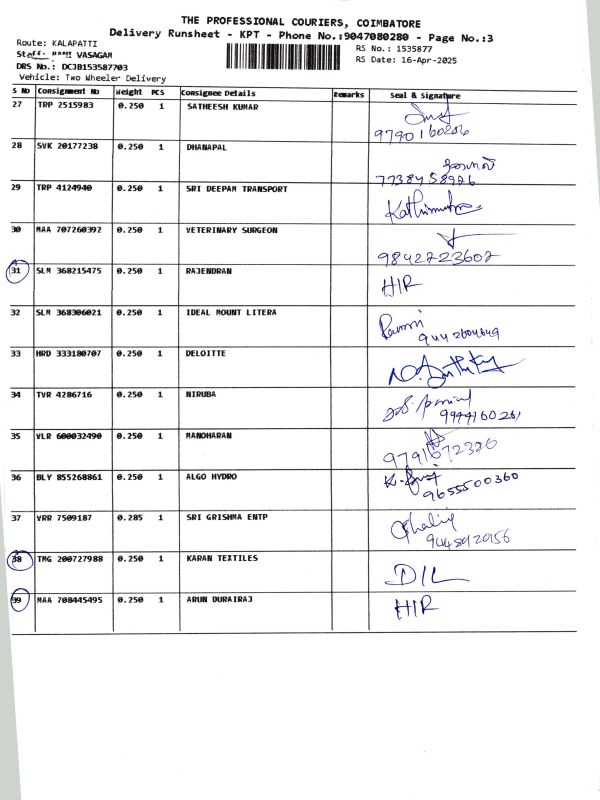 THE PROFESSIONAL COURIERS, COIMBATORE
Delivery Runsheet - KPT - Phone No.:9047080280 - Page No.:3
Route: KALAPATTI
RS No.: 1535877
Staff: MANI VASAGAM
RS Date: 16-Apr-2025
DRS No.: DCJB153587703
Vehicle: Two Wheeler Delivery
S No Consignment No Weight PCS Consignee Details Remarks Seal & Signature
27 TRP 2515983 0.250 1 SATHEESH KUMAR
9790160206
28 SVK 20177238 0.250 1 DHANAPAL
7738458926
29 TRP 4124940 0.250 1 SRI DEEPAM TRANSPORT
30 MAA 707260392 0.250 1 VETERINARY SURGEON
9842223607
31 SLM 368215475 0.250 1 RAJENDRAN HIR
32 SLM 368306021 0.250 1 IDEAL MOUNT LITERA
9442604649
33 HRD 333180707 0.250 1 DELOITTE
34 TVR 4286716 0.250 1 NIRUBA
35 VLR 600032490 0.250 1 MANOHARAN
36 BLY 855268861 0.250 1 ALGO HYDRO
9655500360
37 VRR 7509187 0.285 1 SRI GRISHMA ENTP
38 TMG 200727988 0.250 1 KARAN TEXTILES D/L
39 MAA 708445495 0.250 1 ARUN DURAIRAJ HIR